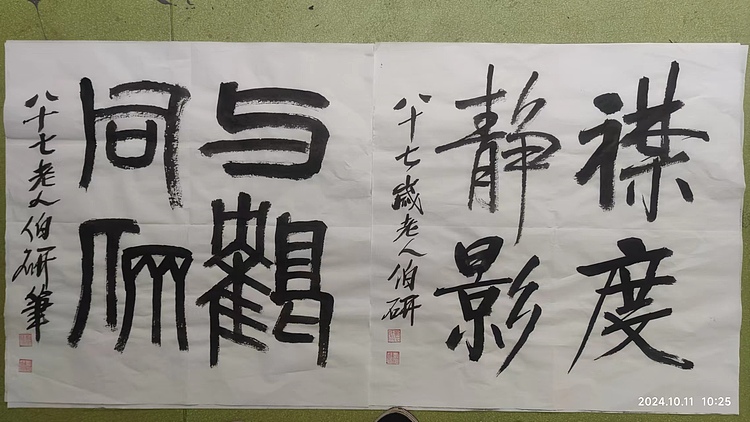 度
静影
八十七歲老人伯研
与
同俩
八十七老人伯研筆
2024.10.11 10:25